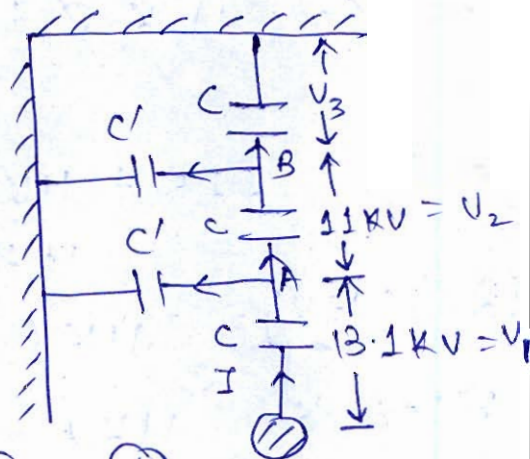 C
V3
C'
B
C
11KV = V2
C'
A
C
13.1KV = V1
I